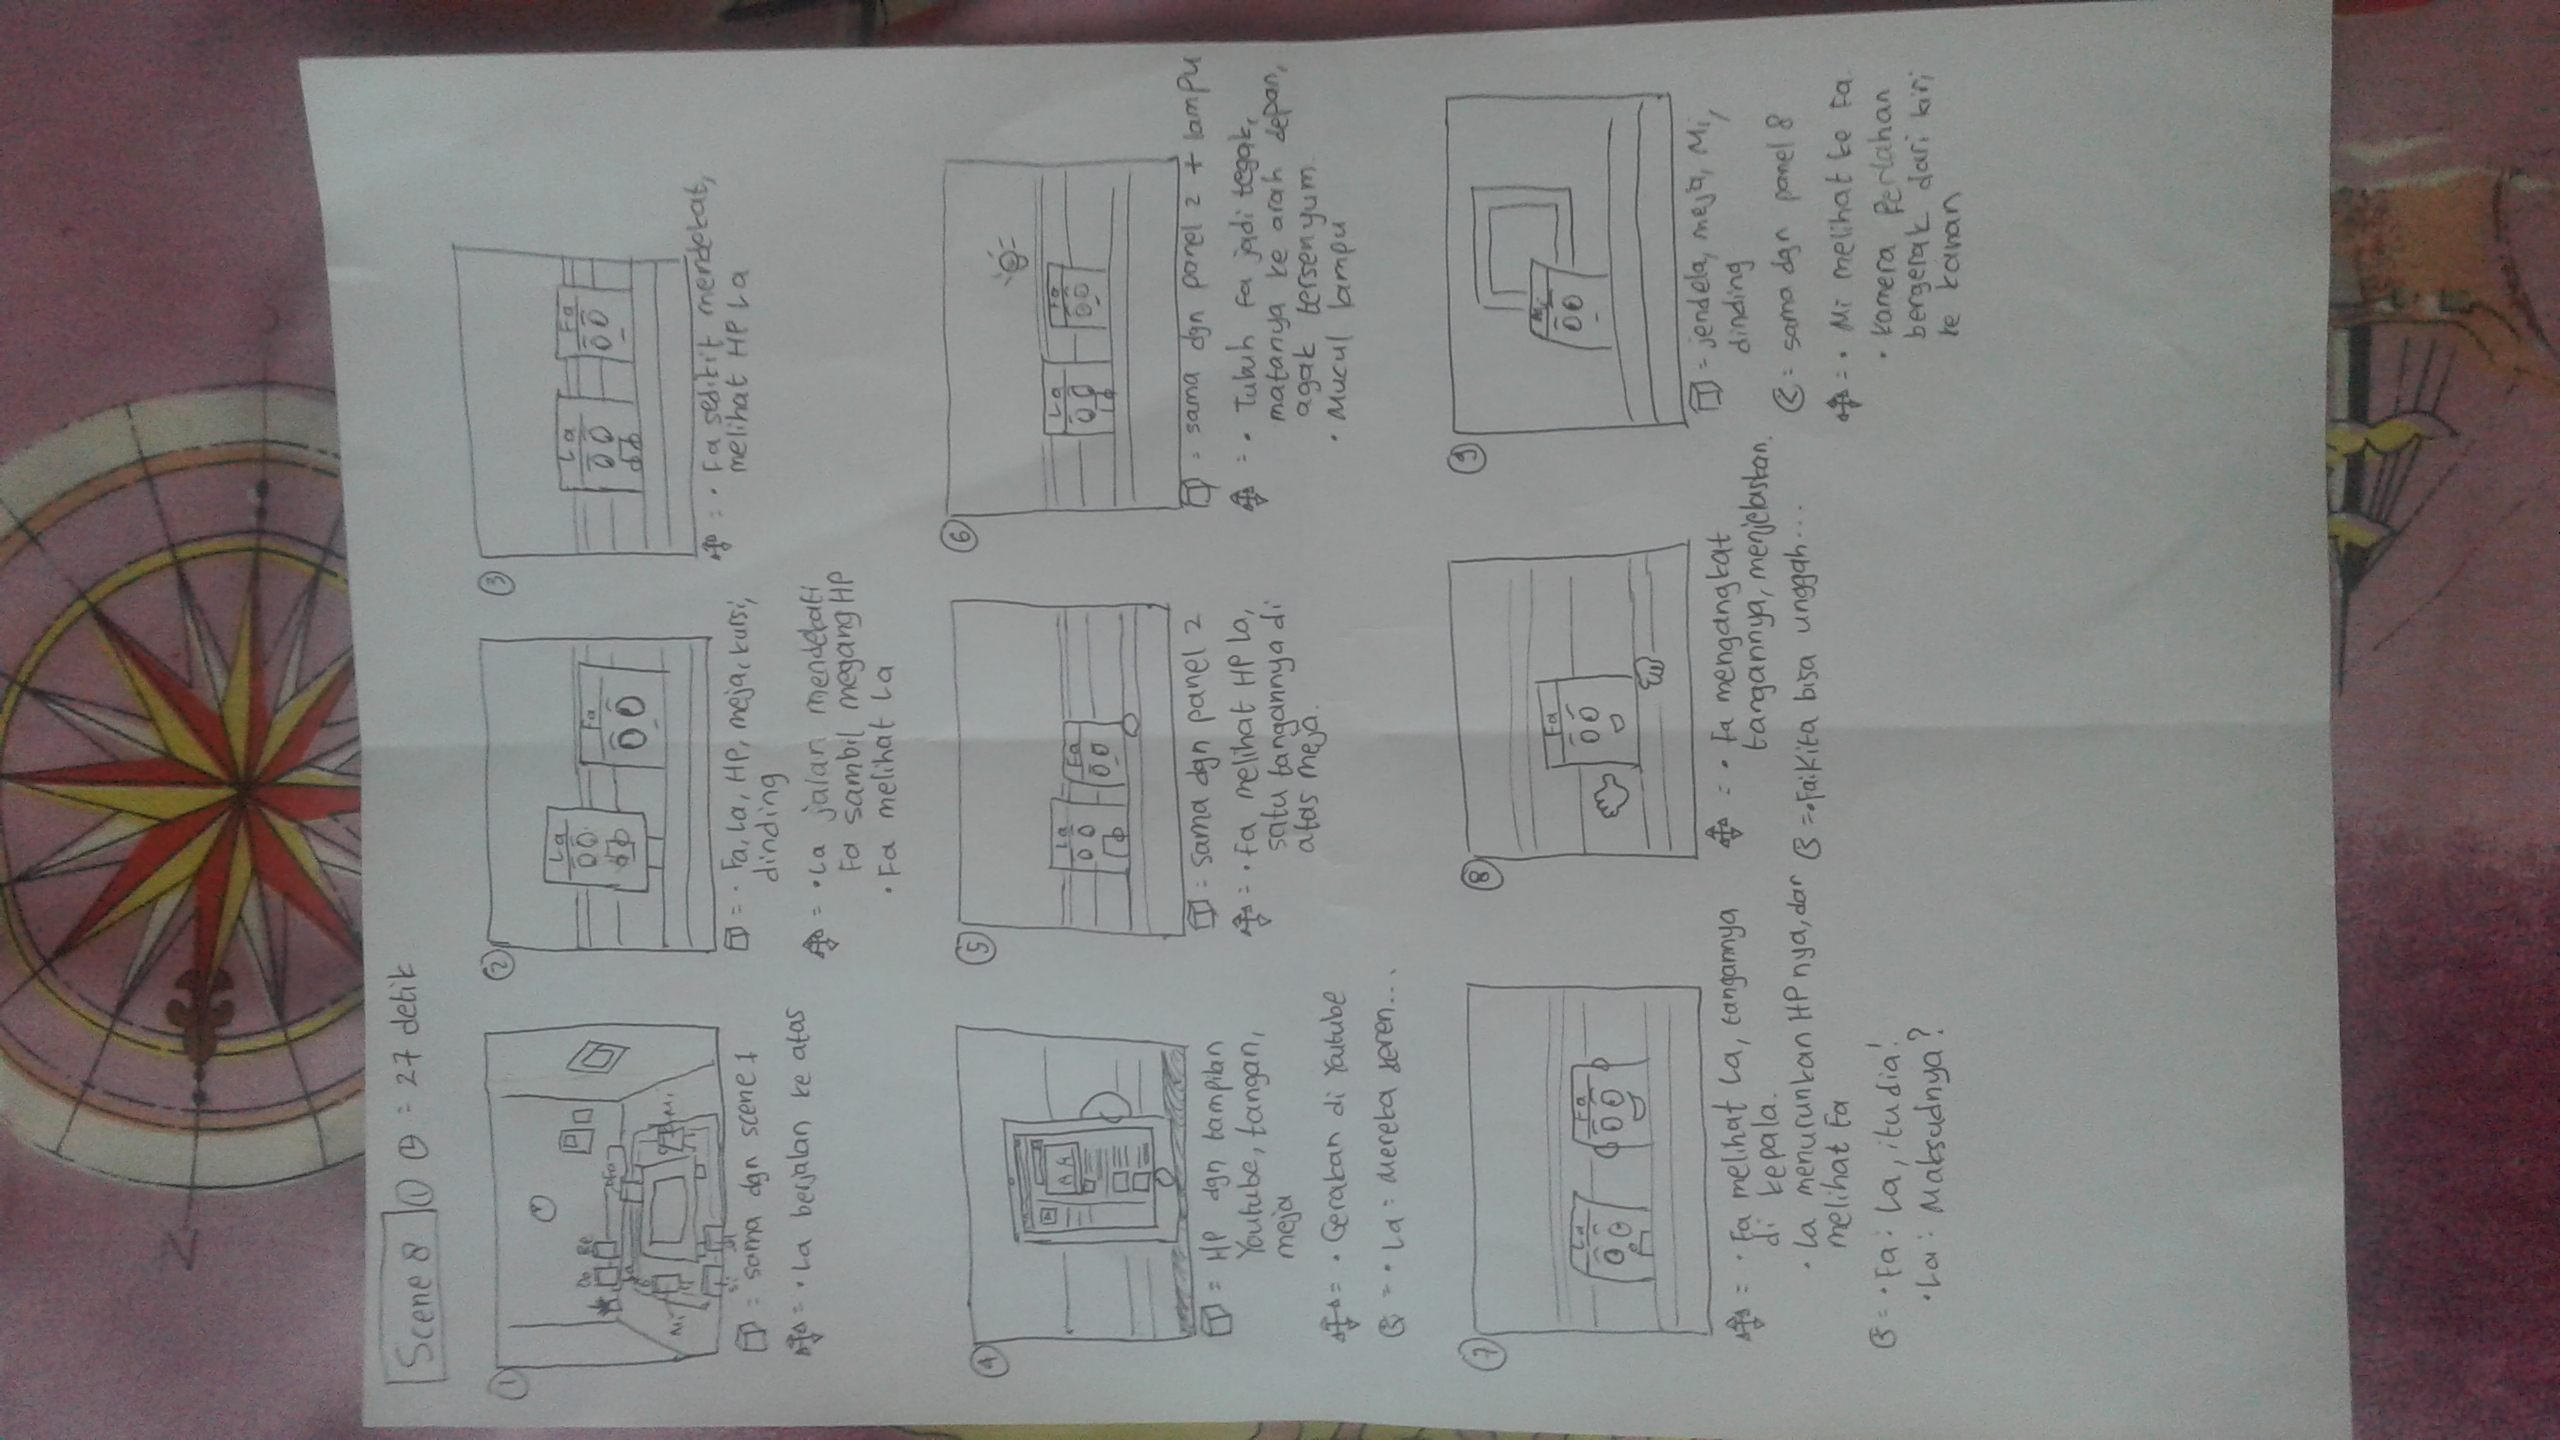 Scene 8 ① = 27 detik
①
Do Re
Fa
Mi
Mi
= sama dgn scene 1
= • La berjalan ke atas
②
La
Fa
= • Fa, La, HP, meja, kursi,
dinding
= • La jalan mendekati
Fa sambil megang HP
• Fa melihat La
③
La Fa
= • Fa sedikit mendekat,
melihat HP La
④
= HP dgn tampilan
Youtube, tangan,
meja
= • Gerakan di Youtube
= • La: Mereka keren...
⑤
La
Fa
= sama dgn panel 2
= • Fa melihat HP La,
satu tangannya di
atas meja.
⑥
La Fa
= sama dgn panel 2 + lampu
= • Tubuh Fa jadi tegak,
matanya ke arah depan,
agak tersenyum
• Mucul lampu
⑦
La Fa
= • Fa melihat La, tangannya
di kepala.
• La menurunkan HP nya, dan
melihat Fa
= • Fa: La, itu dia!
• La: Maksudnya?
⑧
Fa
= • Fa mengangkat
tangannya, menjelaskan.
= • Fa: Kita bisa unggah...
⑨
Mi
= jendela, meja, Mi,
dinding
= sama dgn panel 8
= • Mi melihat ke Fa.
• Kamera Perlahan
bergerak dari kiri
ke kanan